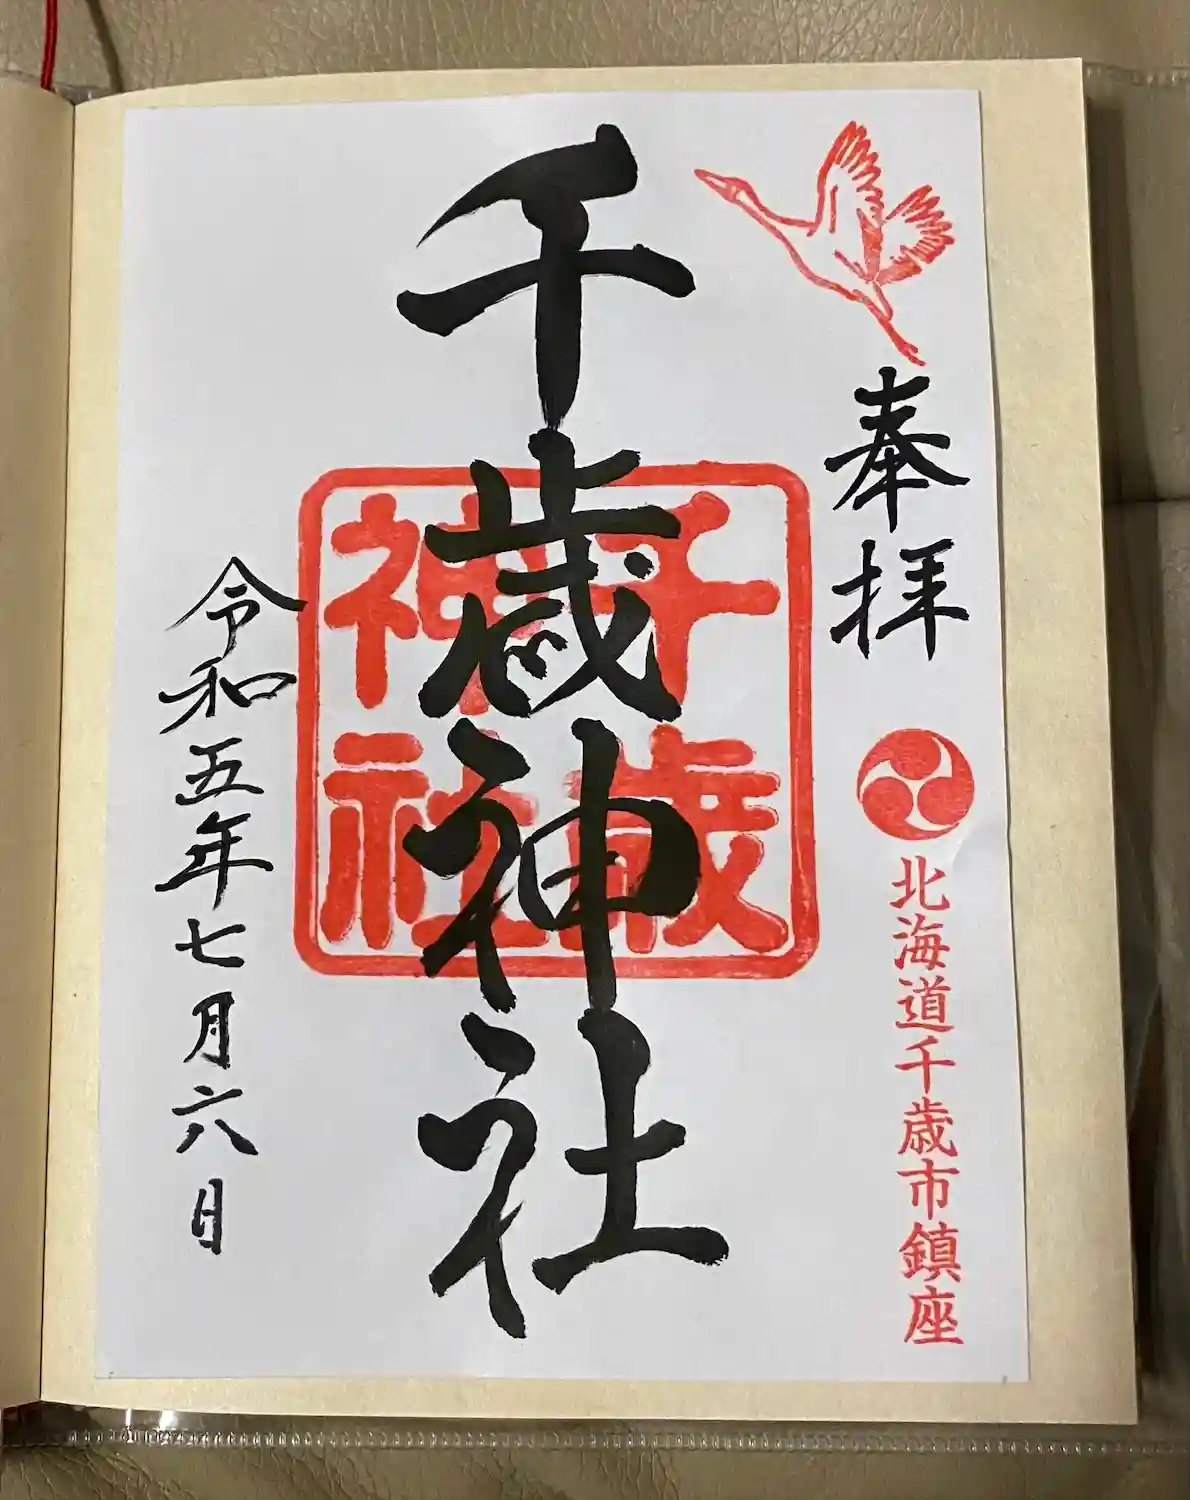 奉拝
北海道千歳市鎮座
千歳神社
千歳
神社
令和五年七月六日